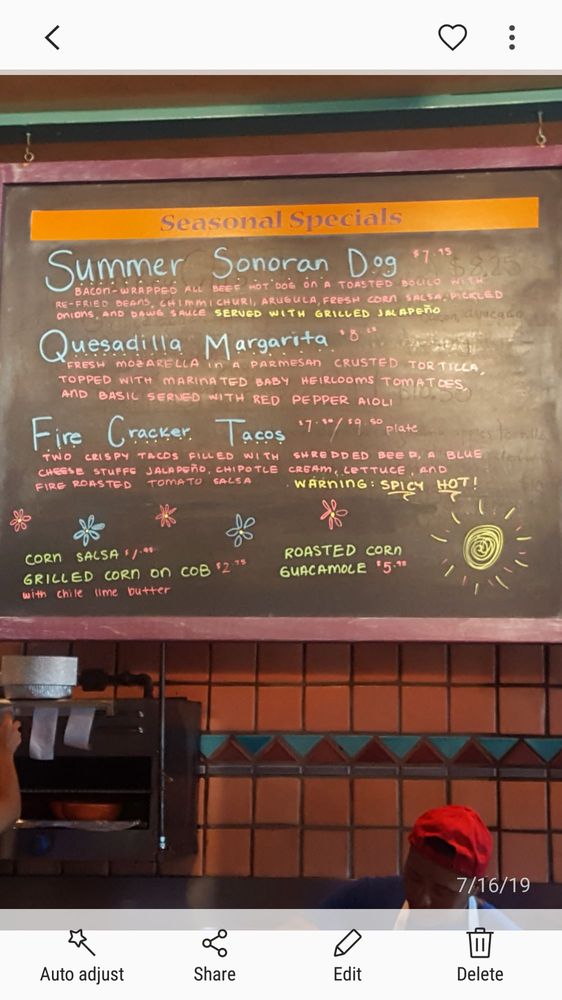 Seasonal Specials
Summer Sonoran Dog $7.95
BACON-WRAPPED ALL BEEF HOT DOG ON A TOASTED BOLILO WITH
RE-FRIED BEANS, CHIMMICHURI, ARUGULA, FRESH CORN SALSA, PICKLED
ONIONS, AND DAWG SAUCE SERVED WITH GRILLED JALAPEÑO
Quesadilla Margarita
FRESH MOZARELLA IN A PARMESAN CRUSTED TORTILLA,
TOPPED WITH MARINATED BABY HEIRLOOMS TOMATOES,
AND BASIL SERVED WITH RED PEPPER AIOLI
Fire Cracker Tacos $7.50/$9.50 plate
TWO CRISPY TACOS FILLED WITH SHREDDED BEEF, A BLUE
CHEESE STUFFS JALAPEÑO, CHIPOTLE CREAM, LETTUCE, AND
FIRE ROASTED TOMATO SALSA . WARNING: SPICY HOT!
CORN SALSA
GRILLED CORN ON COB $2.75
with chile lime butter
ROASTED CORN
GUACAMOLE
7/16/19
Auto adjust
Share
Edit
Delete